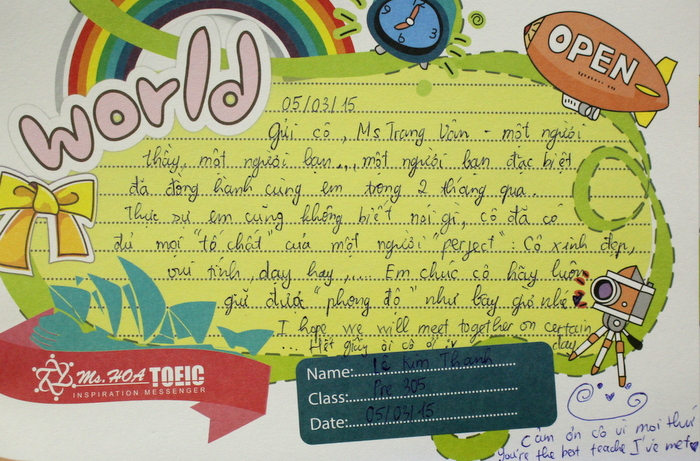 world
OPEN
05/03/15
Gửi cô, Ms Trang Vân - một người
thầy, một người bạn... một người bạn đặc biệt
đã đồng hành cùng em trong 2 tháng qua.
Thực sự em cũng không biết nói gì, cô đã có
đủ mọi "tố chất" của một người "perfect": Cô xinh đẹp,
vui tính, dạy hay,... Em chúc cô hãy luôn
giữ được "phong độ" như bây giờ nhé
I hope we will meet together on certain
day
... Hết giấy rồi cô ơi
Ms. HOA TOEIC
INSPIRATION MESSENGER
Name: Lê Kim Thanh
Class: Pre 305
Date: 05/03/15
Cảm ơn cô vì mọi thứ
You're the best teacher I've met